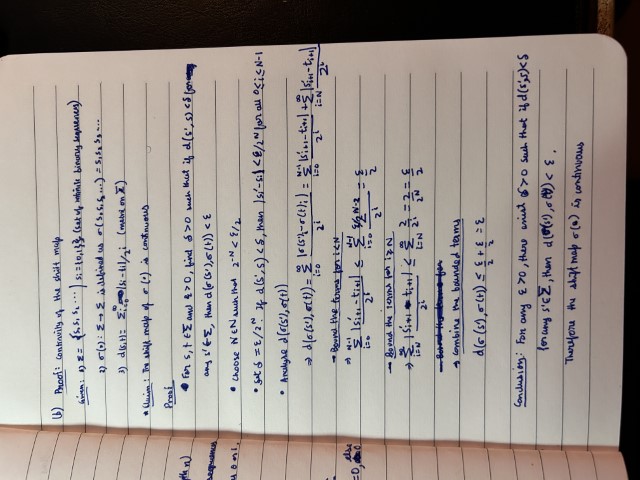 (b) Proof: continuity of the shift map
Given: 1) Σ = {S₀S₁S₂ ... | Sᵢ = {0,1}} (set of infinite binary sequences)
2) σ(•): Σ → Σ is defined as σ(S₀S₁S₂...) = S₁S₂S₃...
3) d(s,t) = Σᵢ₌₀^∞ |sᵢ-tᵢ|/2ⁱ (metric on Σ)
• Claim: The shift map of σ(•) is continuous
Proof
• For s,t ∈ Σ and ε>0, find δ>0 such that if d(s',s) < δ for
any s' ∈ Σ, then d(σ(s'),σ(t)) < ε
• Choose N∈N such that 2^-N < ε/2
• Set δ = ε/2^N. If d(s',s) < δ, then |sᵢ'-sᵢ| < ε/2^N for all 0≤i≤N-1
• Analyse d(σ(s'),σ(t))
⇒ d(σ(s'),σ(t)) = Σ_{i=0}^∞ |σ(s')ᵢ-σ(t)ᵢ|/2ⁱ = Σ_{i=0}^{N-1} |s'ᵢ₊₁-tᵢ₊₁|/2ⁱ + Σ_{i=N}^∞ |s'ᵢ₊₁-tᵢ₊₁|/2ⁱ
→ Bound the terms for i<N
⇒ Σ_{i=0}^{N-1} |s'ᵢ₊₁-tᵢ₊₁|/2ⁱ ≤ Σ_{i=0}^{N-1} /2ⁱ = ε/2
→ Bound the terms for i≥N
⇒ Σ_{i=N}^∞ |s'ᵢ₊₁-tᵢ₊₁|/2ⁱ ≤ Σ_{i=N}^∞ 2/2ⁱ = 2/2^N = ε/2
→ Combine the bounded terms
d(σ(s'),σ(t)) ≤ ε/2 + ε/2 = ε
Conclusion: For any ε>0, there exist δ>0 such that if d(s',s)<δ
for any s'∈Σ, then d(σ(s'),σ(t)) < ε.
Therefore the shift map σ(•) is continuous